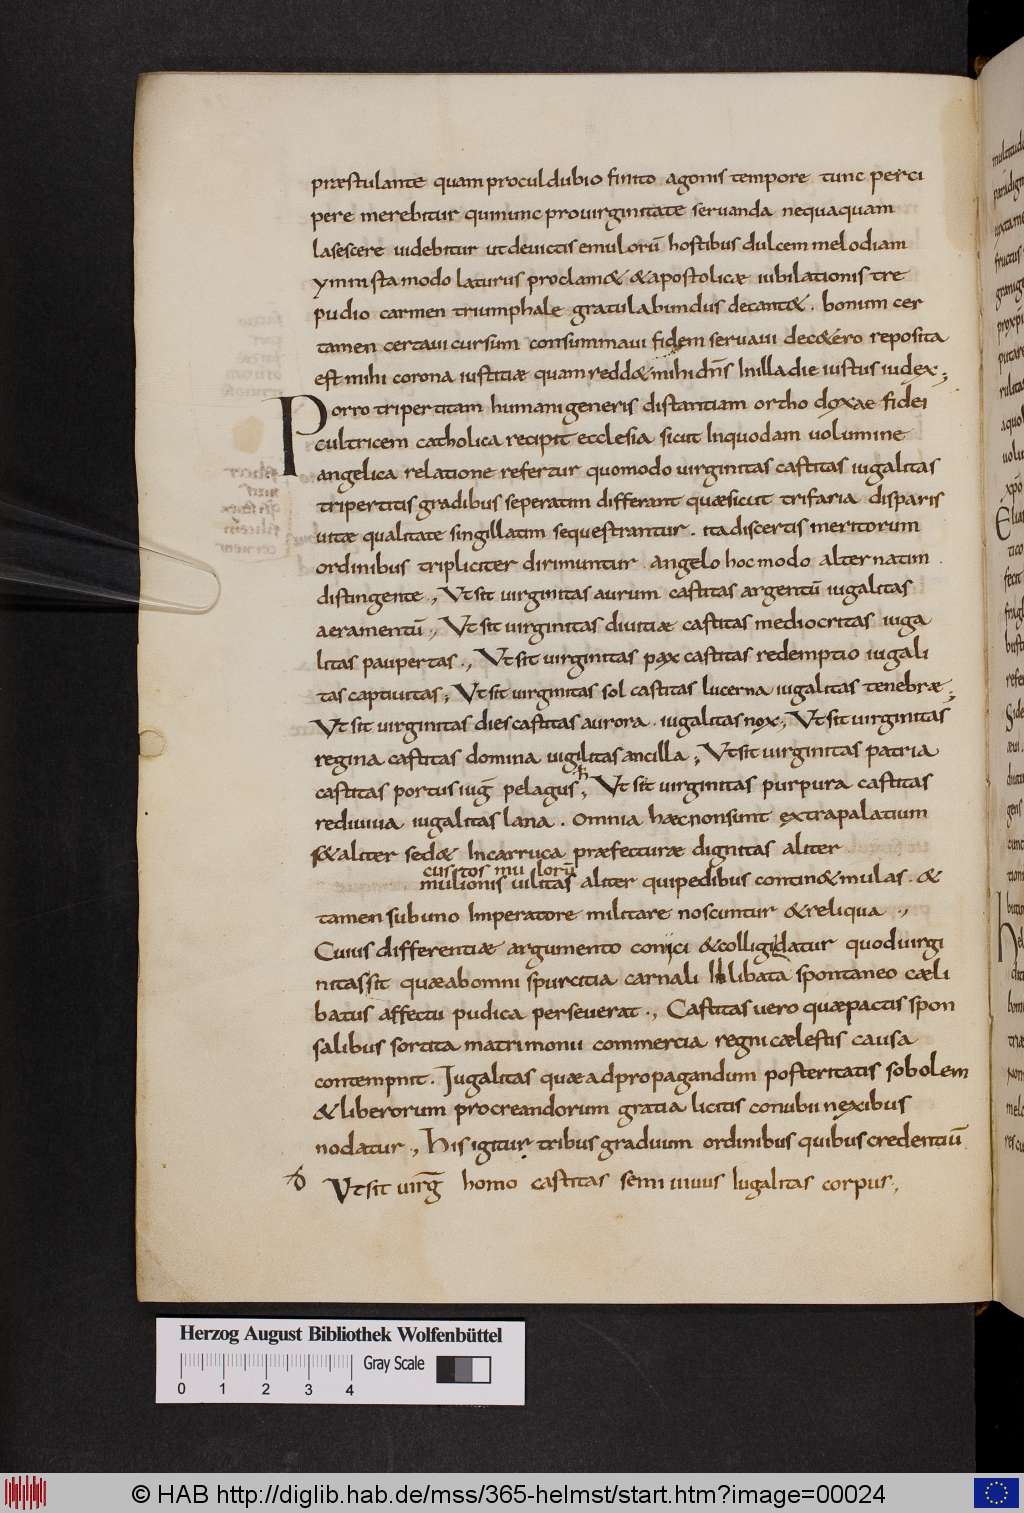 præstulante quam procul dubio finito agonis tempore tunc perci
pere merebitur qui nunc pro virginitate servanda nequaquam
lasescere videbitur ut devictis emulorū hostibus dulcem melodiam
ymnista modo laturus proclam& & apostolicæ iubilationis tre
pudio carmen triumphale gratulabundus decant&. bonum cer
tamen certavi cursum consummavi fidem servavi dec&ero reposita
est mihi corona iustitiæ quam redd& mihi dn̄s In illa die iustus iudex;
Porro tripertitam humani generis distantiam ortho doxae fidei
cultricem catholica recipit ecclesia sicut In quodam volumine
angelica relatione refertur quomodo virginitas castitas iugalitas
tripertitis gradibus seperatim differant quæ sicut trifaria disparis
vitæ qualitate singillatim sequestrantur. ita discertis meritorum
ordinibus tripliciter dirimuntur. angelo hoc modo alternatim.
distingente., Ut sit virginitas aurum castitas argentū iugalitas
aeramentū., Ut sit virginitas divitiæ castitas mediocritas iuga
litas paupertas., Ut sit virginitas pax castitas redemptio iugali
tas captivitas; Ut sit virginitas sol castitas lucerna iugalitas tenebræ;
Ut sit virginitas dies castitas aurora. iugalitas nox; Ut sit virginitas
regina castitas domina iugilitas ancilla; Ut sit virginitas patria
castitas portus iug̅ pelagus; Ut sit virginitas purpura castitas
rediviva iugalitas lana. Omnia hæc non sunt extra palatium
s& aliter sed& In carruca præfecturæ dignitas aliter
custos mulorū
mulionis vilitas aliter qui pedibus contin& mulas. &
tamen sub uno Imperatore militare noscuntur & reliqua.,
Cuius differentiæ argumento conijci & colligi datur quod virgi
nitas sit quæ ab omni spurcitia carnali Illibata spontaneo cæli
batus affectu pudica perseverat., Castitas vero quæ pactis spon
salibus sortita matrimonii commercia regni cælestis causa
contempnit. Iugalitas quæ ad propagandum posteritatis sobolem
& liberorum procreandorum gratia licitis conubii nexibus
nodatur., His igitur tribus graduum ordinibus quibus credentiū
Ut sit virg̅ homo castitas semivivus Iugalitas corpus.,
Herzog August Bibliothek Wolfenbüttel
Gray Scale
0 1 2 3 4
© HAB http://diglib.hab.de/mss/365-helmst/start.htm?image=00024